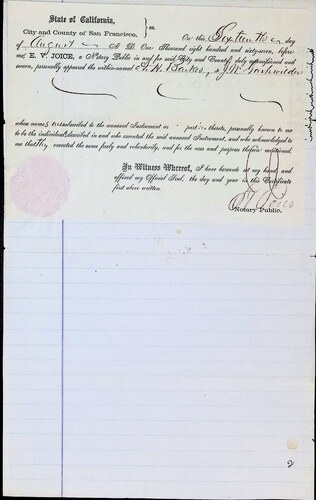 State of California,
City and County of San Francisco,
On this Sixteenth day
of August A. D. One Thousand eight hundred and sixty-seven, before
me, E. V. JOICE, a Notary Public in and for said City and County, duly commissioned and
sworn, personally appeared the within-named
whose names subscribed to the annexed Instrument as parties thereto, personally known to me
to be the individuals described in and who executed the said annexed Instrument, and who acknowledged to
me that they executed the same freely and voluntarily, and for the uses and purposes therein mentioned.
In Witness Whereof, I have hereunto set my hand, and
affixed my Official Seal, the day and year in this Certificate
first above written.
E V Joice
Notary Public.
2